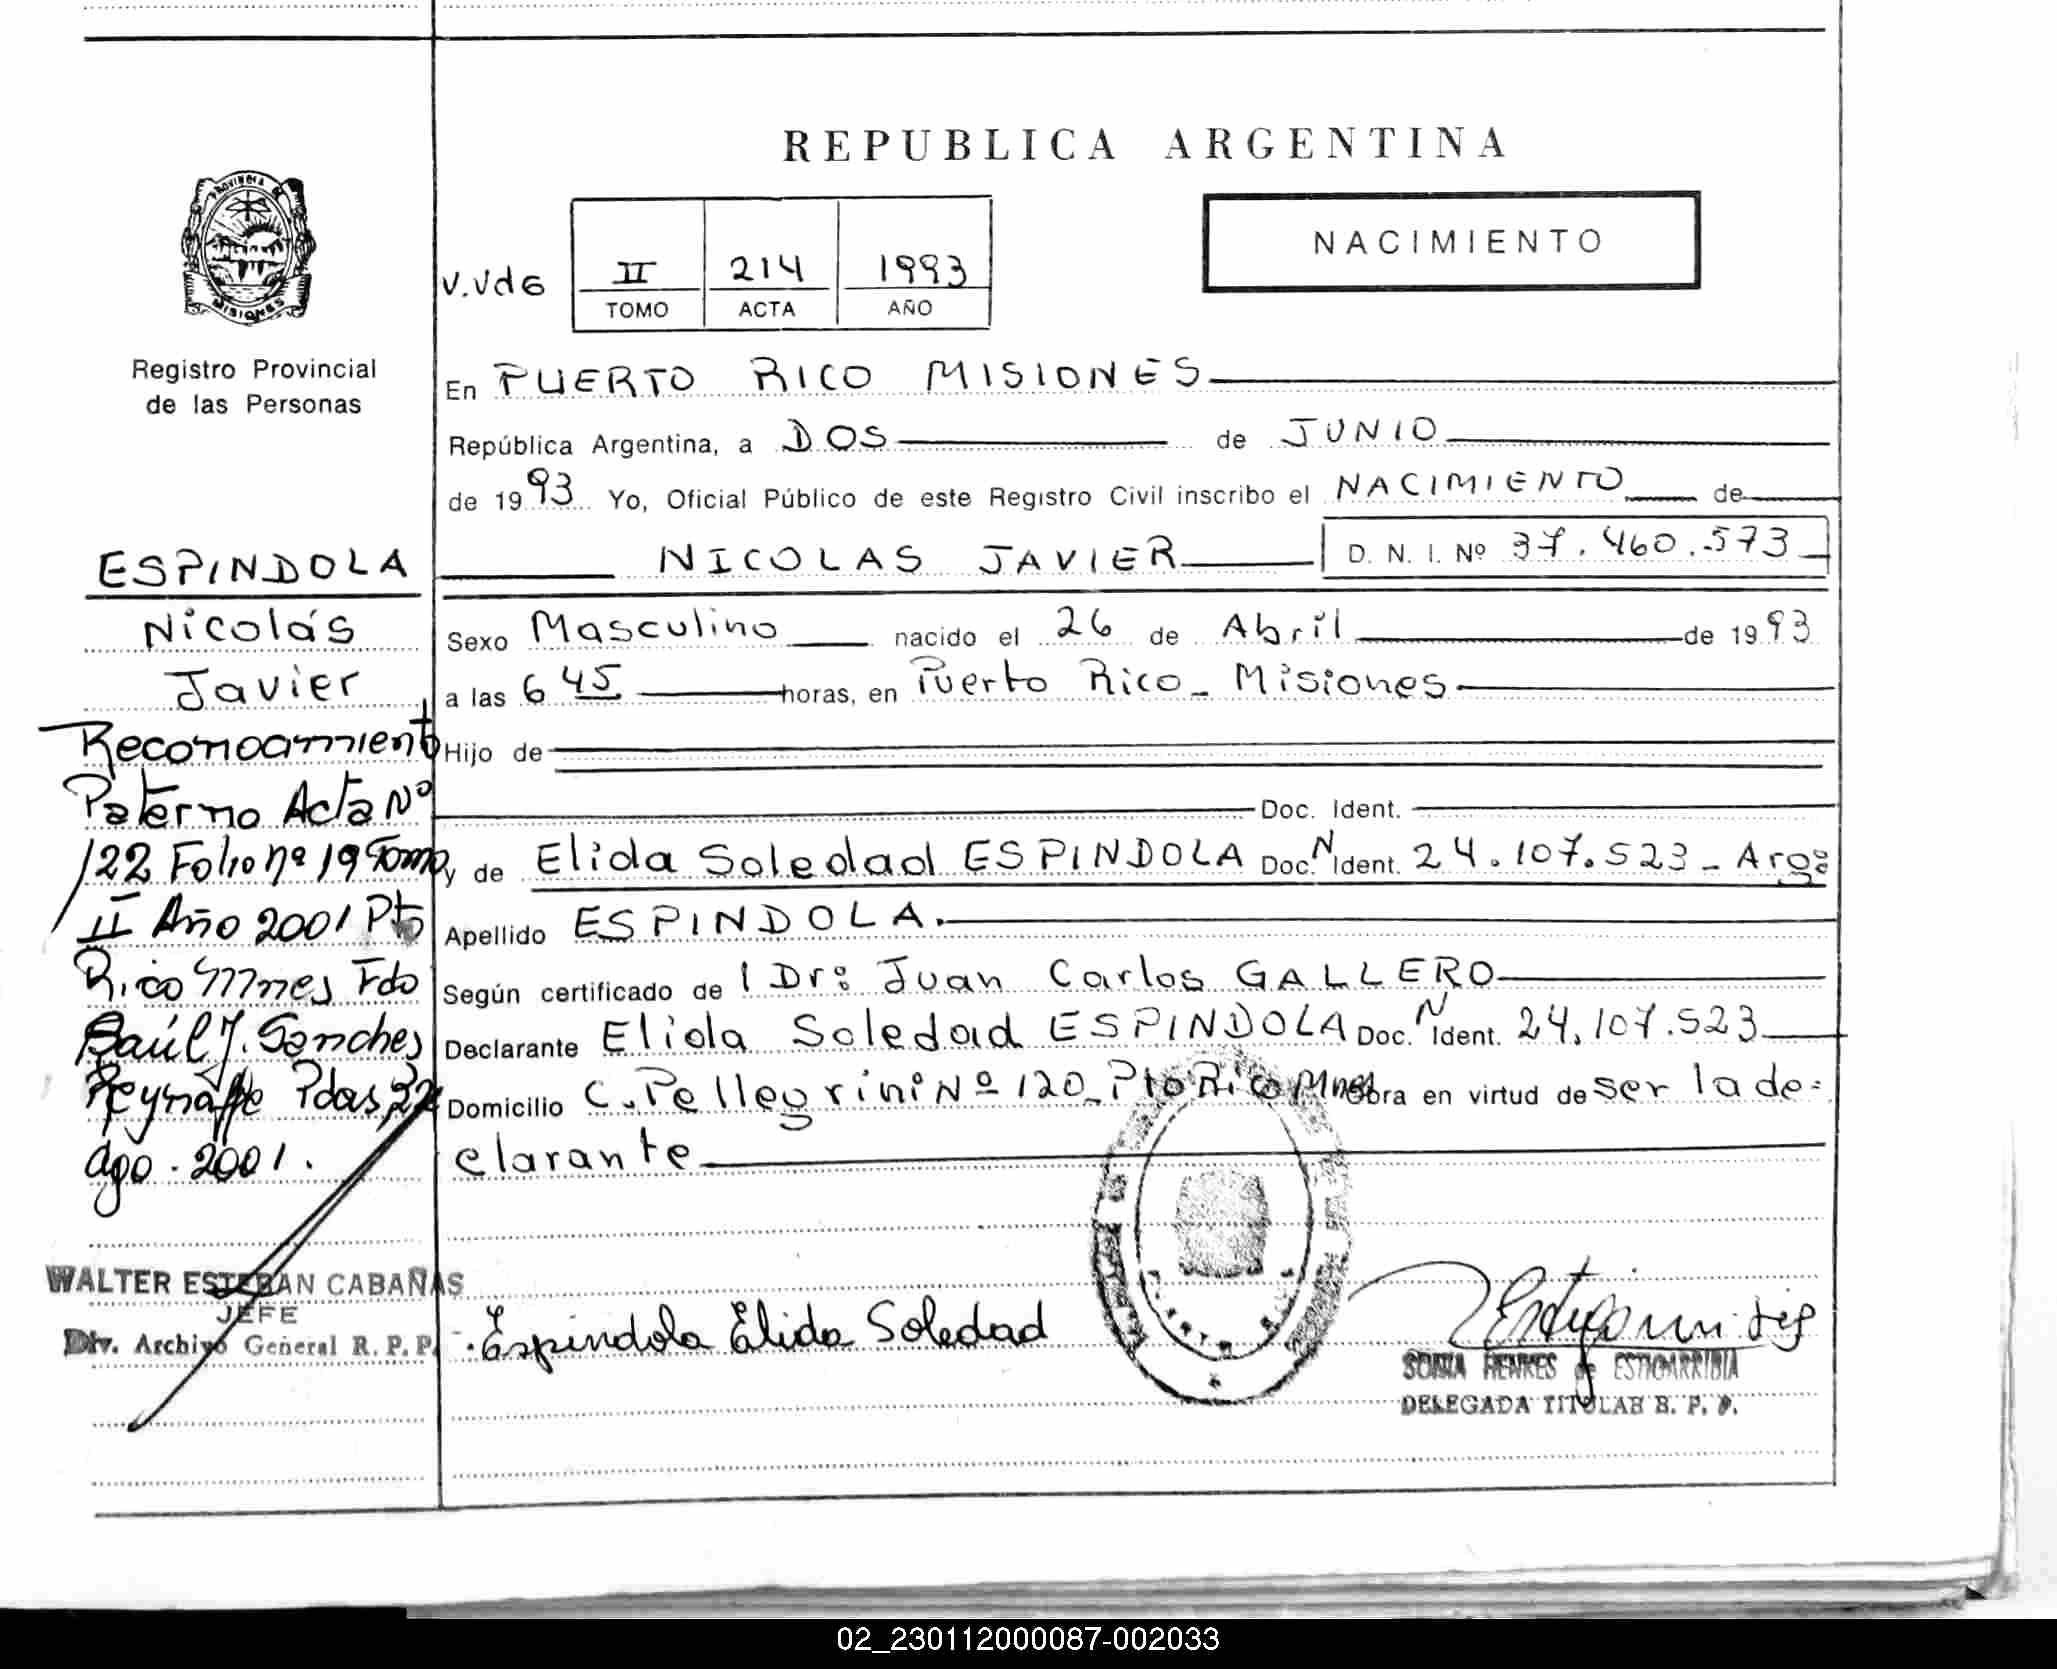 REPUBLICA ARGENTINA
PROVINCIA DE
MISIONES
NACIMIENTO
V.Vd6
II
214
1993
TOMO
ACTA
AÑO
Registro Provincial
de las Personas
En PUERTO RICO MISIONES
República Argentina, a DOS de JUNIO
de 1993 Yo, Oficial Público de este Registro Civil inscribo el NACIMIENTO de
NICOLAS JAVIER D. N. I. Nº 37.460.573
Sexo Masculino nacido el 26 de Abril de 1993
a las 6 45 horas, en Puerto Rico - Misiones
Hijo de
Doc. Ident.
y de Elida Soledad ESPINDOLA Doc. N Ident. 24.107.523 - Arg:
Apellido ESPINDOLA.
Según certificado de l Dr: Juan Carlos GALLERO
Declarante Elida Soledad ESPINDOLA Doc. N Ident. 24.107.523
Domicilio C. Pellegrini Nº 120 Pto Rico Mnes obra en virtud de ser la de=
clarante
ESPINDOLA
Nicolás
Javier
Reconocimiento
Paterno Acta Nº
122 Folio nº 19 Tomo
II Año 2001 Pto
Rico Mnes Fdo
Raúl J. Sanches
Pdas, 22
Ago. 2001.
WALTER ESTEBAN CABAÑAS
JEFE
Div. Archivo General R. P. P.
Espindola Elida Soledad
SONIA HENKES de ESTIGARRIBIA
DELEGADA TITULAR R. P. P.
02_230112000087-002033